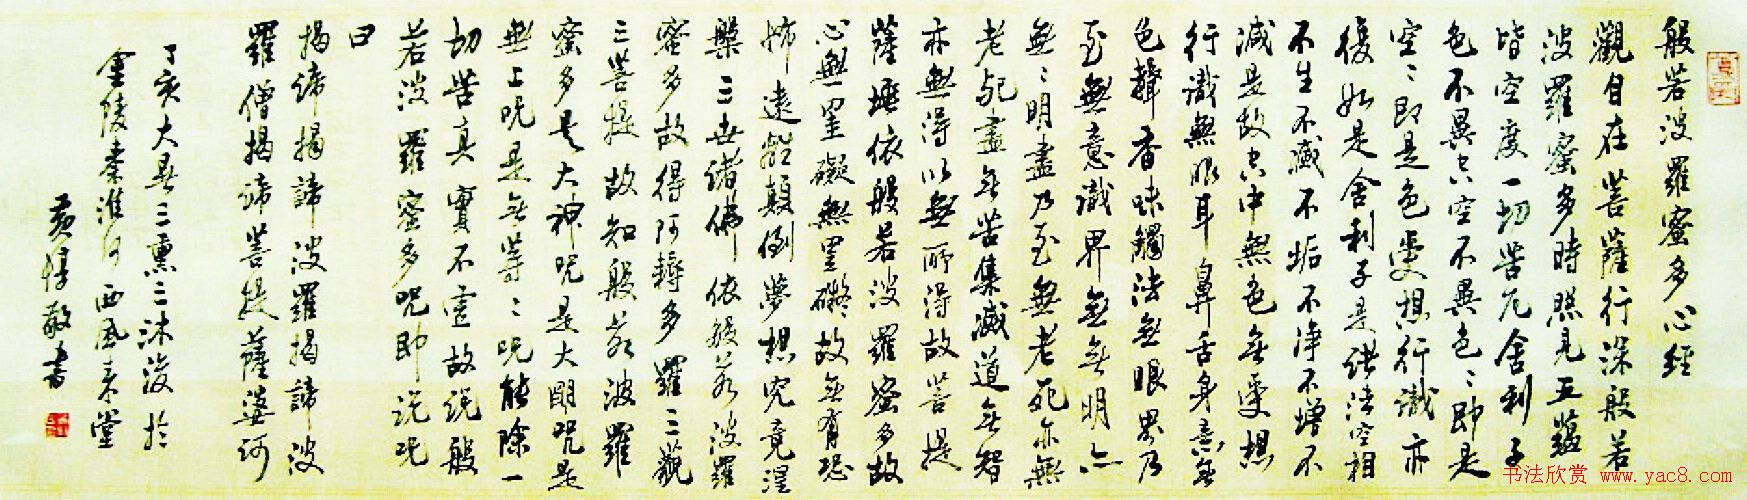 般若波羅蜜多心經
觀自在菩薩行深般若
波羅蜜多時照見五蘊
皆空度一切苦厄舍利子
色不異空空不異色〻即是
空〻即是色受想行識亦
復如是舍利子是諸法空相
不生不滅不垢不淨不增不
減是故空中無色無受想
行識無眼耳鼻舌身意無
色聲香味觸法無眼界乃
至無意識界無無明亦
無〻明盡乃至無老死亦無
老死盡無苦集滅道無智
亦無得以無所得故菩提
薩埵依般若波羅蜜多故
心無罣礙無罣礙故無有恐
怖遠離顛倒夢想究竟涅
槃三世諸佛依般若波羅
蜜多故得阿耨多羅三藐
三菩提故知般若波羅
蜜多是大神咒是大明咒是
無上咒是無等〻咒能除一
切苦真實不虛故說般
若波羅蜜多咒即說咒
曰
揭諦揭諦波羅揭諦波
羅僧揭諦菩提薩婆訶
丁亥大暑三熏三沐後於
金陵秦淮河西風來堂
黃惇敬書
书法欣赏 www.yac8.com